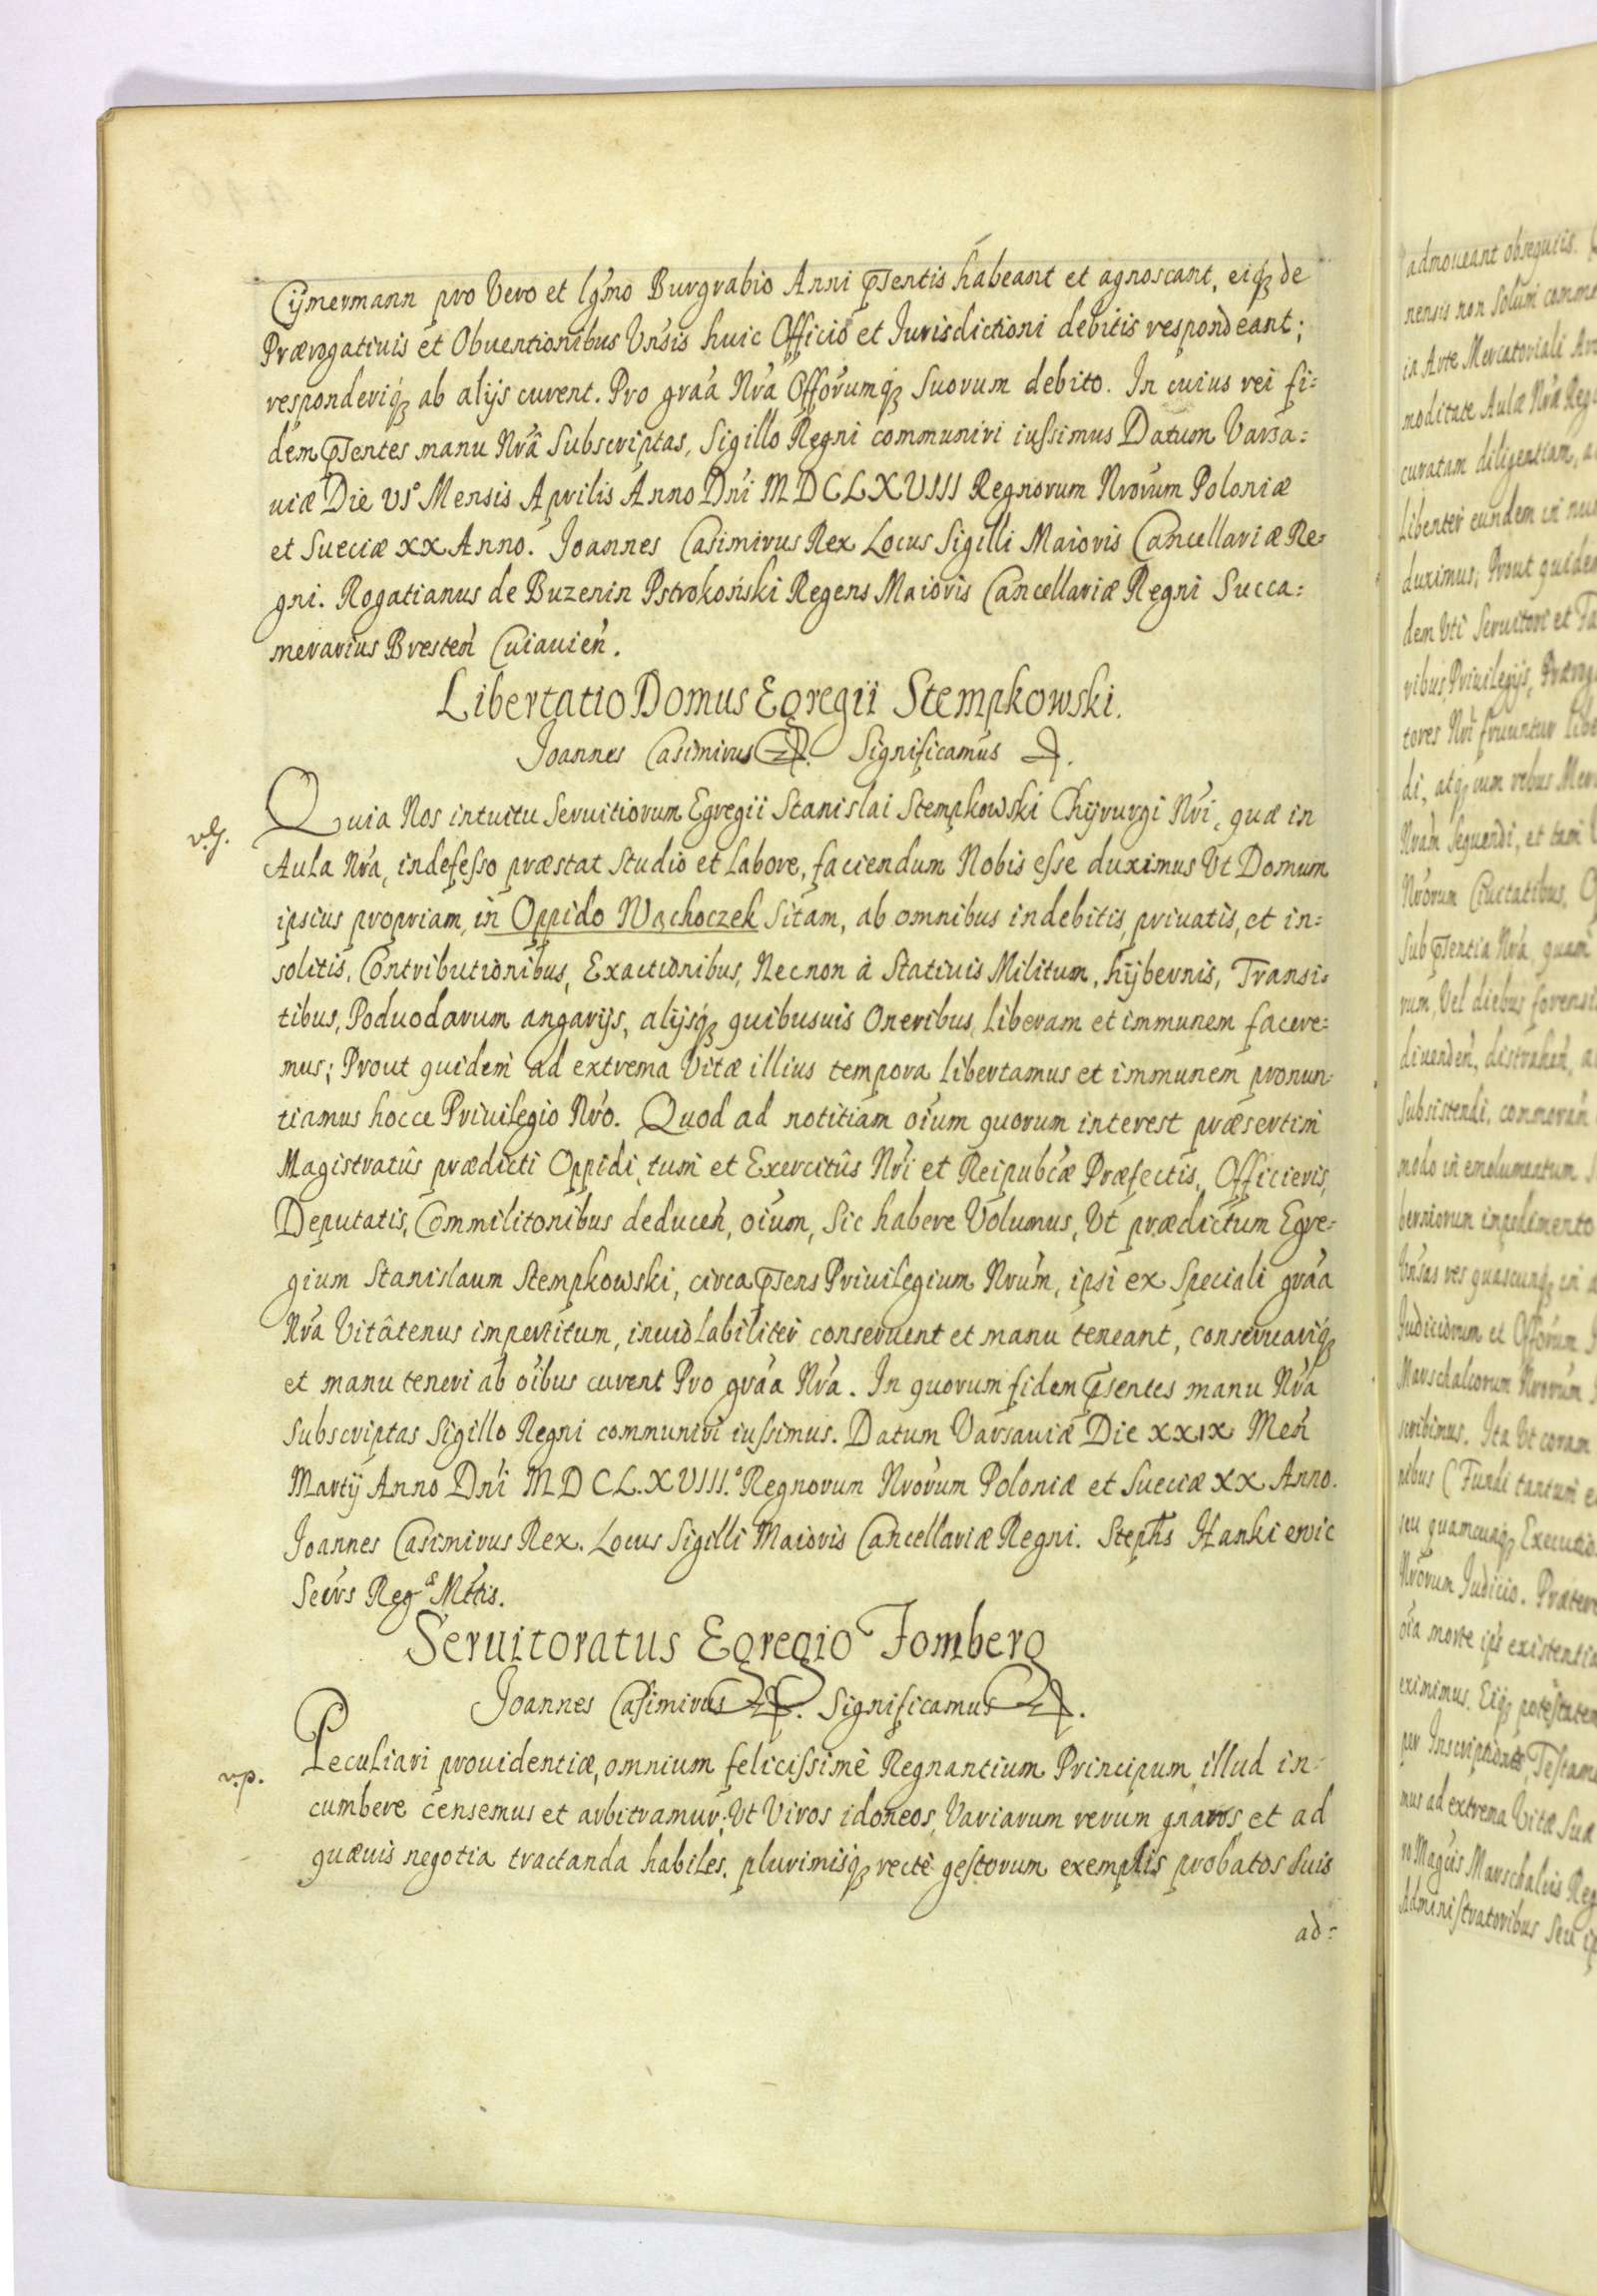 Cijmermann pro Vero et lgmo Burgrabio Anni pntis habeant et agnoscant, eiq3 de
Prærogatiuis et Obuentionibus Vnsis huic Officio et Jurisdictioni debitis respondeant;
responderiq3 ab alijs curent. Pro graa Nra Offorumq3 Suorum debito. In cuius rei fi=
dem pntes manu Nrâ Subscriptas, Sigillo Regni communiri iussimus Datum Varsa=
uiæ Die VI° Mensis Aprilis Anno Dni MDCLXVIII Regnorum Nrorum Poloniæ
et Sueciæ XX Anno. Joannes Casimirus Rex Locus Sigilli Maioris Cancellariæ Re=
gni. Rogatianus de Buzenin Pstrokoński Regens Maioris Cancellariæ Regni Succa=
merarius Bresten Cuiauien.
Libertatio Domus Egregii Stempkowski.
Joannes Casimirus Significamus
Quia Nos intuitu Seruitiorum Egregii Stanislai Stempkowski Chijrurgi Nri, quæ in
Aula Nra, indefesso præstat Studio et Labore, faciendum Nobis esse duximus Vt Domum
ipsius propriam, in Oppido Wachoczek Sitam, ab omnibus indebitis, priuatis, et in=
solitis, Contributionibus, Exactionibus, Necnon à Statiuis Militum, hijbernis, Transi=
tibus, Poduodarum angarijs, alijsq3 quibusuis Oneribus, Liberam et immunem facere=
mus; Prout quidem ad extrema Vitæ illius tempora Libertamus et immunem pronun=
tiamus hocce Priuilegio Nro. Quod ad notitiam oium quorum interest præsertim
Magistratûs prædicti Oppidi, tum et Exercitûs Nri et Reipubcæ Præfectis, Officieris,
Deputatis, Commilitonibus deducen, oium, Sic habere Volumus, Vt prædictum Egre=
gium Stanislaum Stempkowski, circa pns Priuilegium Nrum, ipsi ex Speciali graa
Nra Vitâtenus impertitum, inuiolabiliter conseruent et manu teneant, conseruariq3
et manu teneri ab oibus curent Pro graa Nra. In quorum fidem pntes manu Nra
Subscriptas Sigillo Regni communiri iussimus. Datum Varsauiæ Die XXIX Men
Martij Anno Dni MDCL.XVIII.° Regnorum Nrorum Poloniæ et Sueciæ XX Anno.
Joannes Casimirus Rex. Locus Sigilli Maioris Cancellariæ Regni. Stephs Hankiewic
Secrs Reg s Mttis.
Seruitoratus Egregio Jomberg
Joannes Casimirus Significamus
v.p. Peculiari prouidentiæ, omnium felicissimè Regnantium Principum, illud in=
cumbere censemus et arbitramur; Vt Viros idoneos, Variarum rerum gnaros et ad
quæuis negotia tractanda habiles, plurimisq3 rectè gestorum exemplis probatos Suis
ad=
admoueant obsequiis.
nensis non solum
ia Arte Mercatoriali
moditate Aulæ Nræ
curatam diligentiam,
Libenter eundem in
duximus; Prout
dem Vti Seruitori et
ribus, Priuilegijs,
tores Nri fruuntur
di, atq3 cum rebus
Nram sequendi, et
Nrorum Ciuitatibus,
Sub pntia Nra, quam
rum, Vel diebus
diuenden, distrahen,
Subsistendi, commoran
modo in emolumentum
berniorum impedimento
Vnsas res quascunq3 in
Judiciorum et Offorum
Marschalcorum Nrorum
scribimus. Ita Vt coram
nibus (Fundi tantum
seu quamcunq3
Nrorum Judicio.
oia morte
eximimus. Eiq3
per Inscriptiones,
mus ad extrema Vitæ Suæ
ro Magcis Marschalcis
Administratoribus Seu